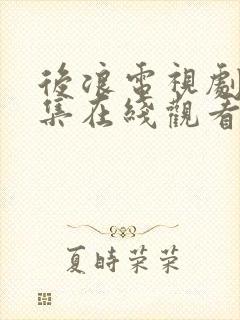 後浪電視劇
集在綫觀看
夏時榮榮